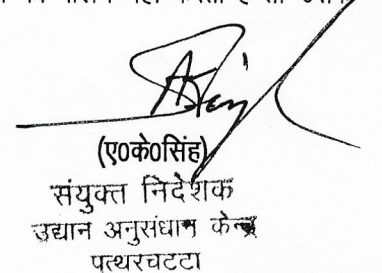 (ए०के०सिंह)
संयुक्त निदेशक
उद्यान अनुसंधान केन्द्र
पत्थरचटटा